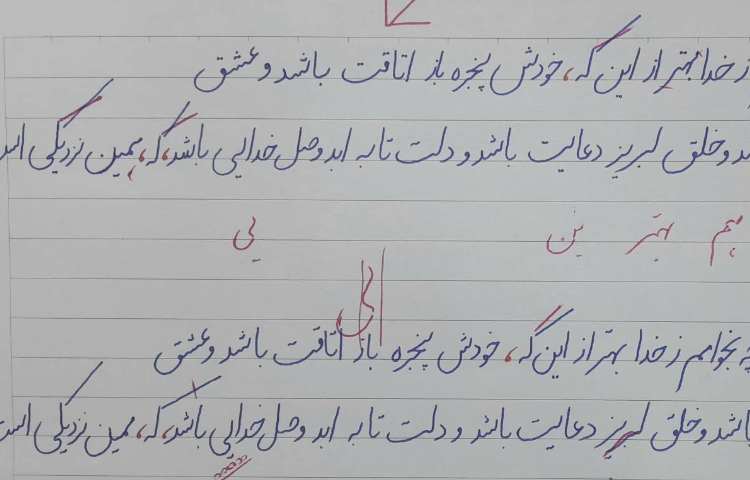 ز خدا بهتر از این که، خودش پنجره باز اتاقت باشد و عشق
د و خلق لبریز دعایت باشد و دلت تا به ابد وصل خدایی باشد، که، همین نزدیکی است
هم بهتر ین یی
به بخواهم ز خدا بهتر از این که، خودش پنجره باز اتاقت باشد و عشق
باشد و خلق لبریز دعایت باشد و دلت تا به ابد وصل خدایی باشد، که، همین نزدیکی است